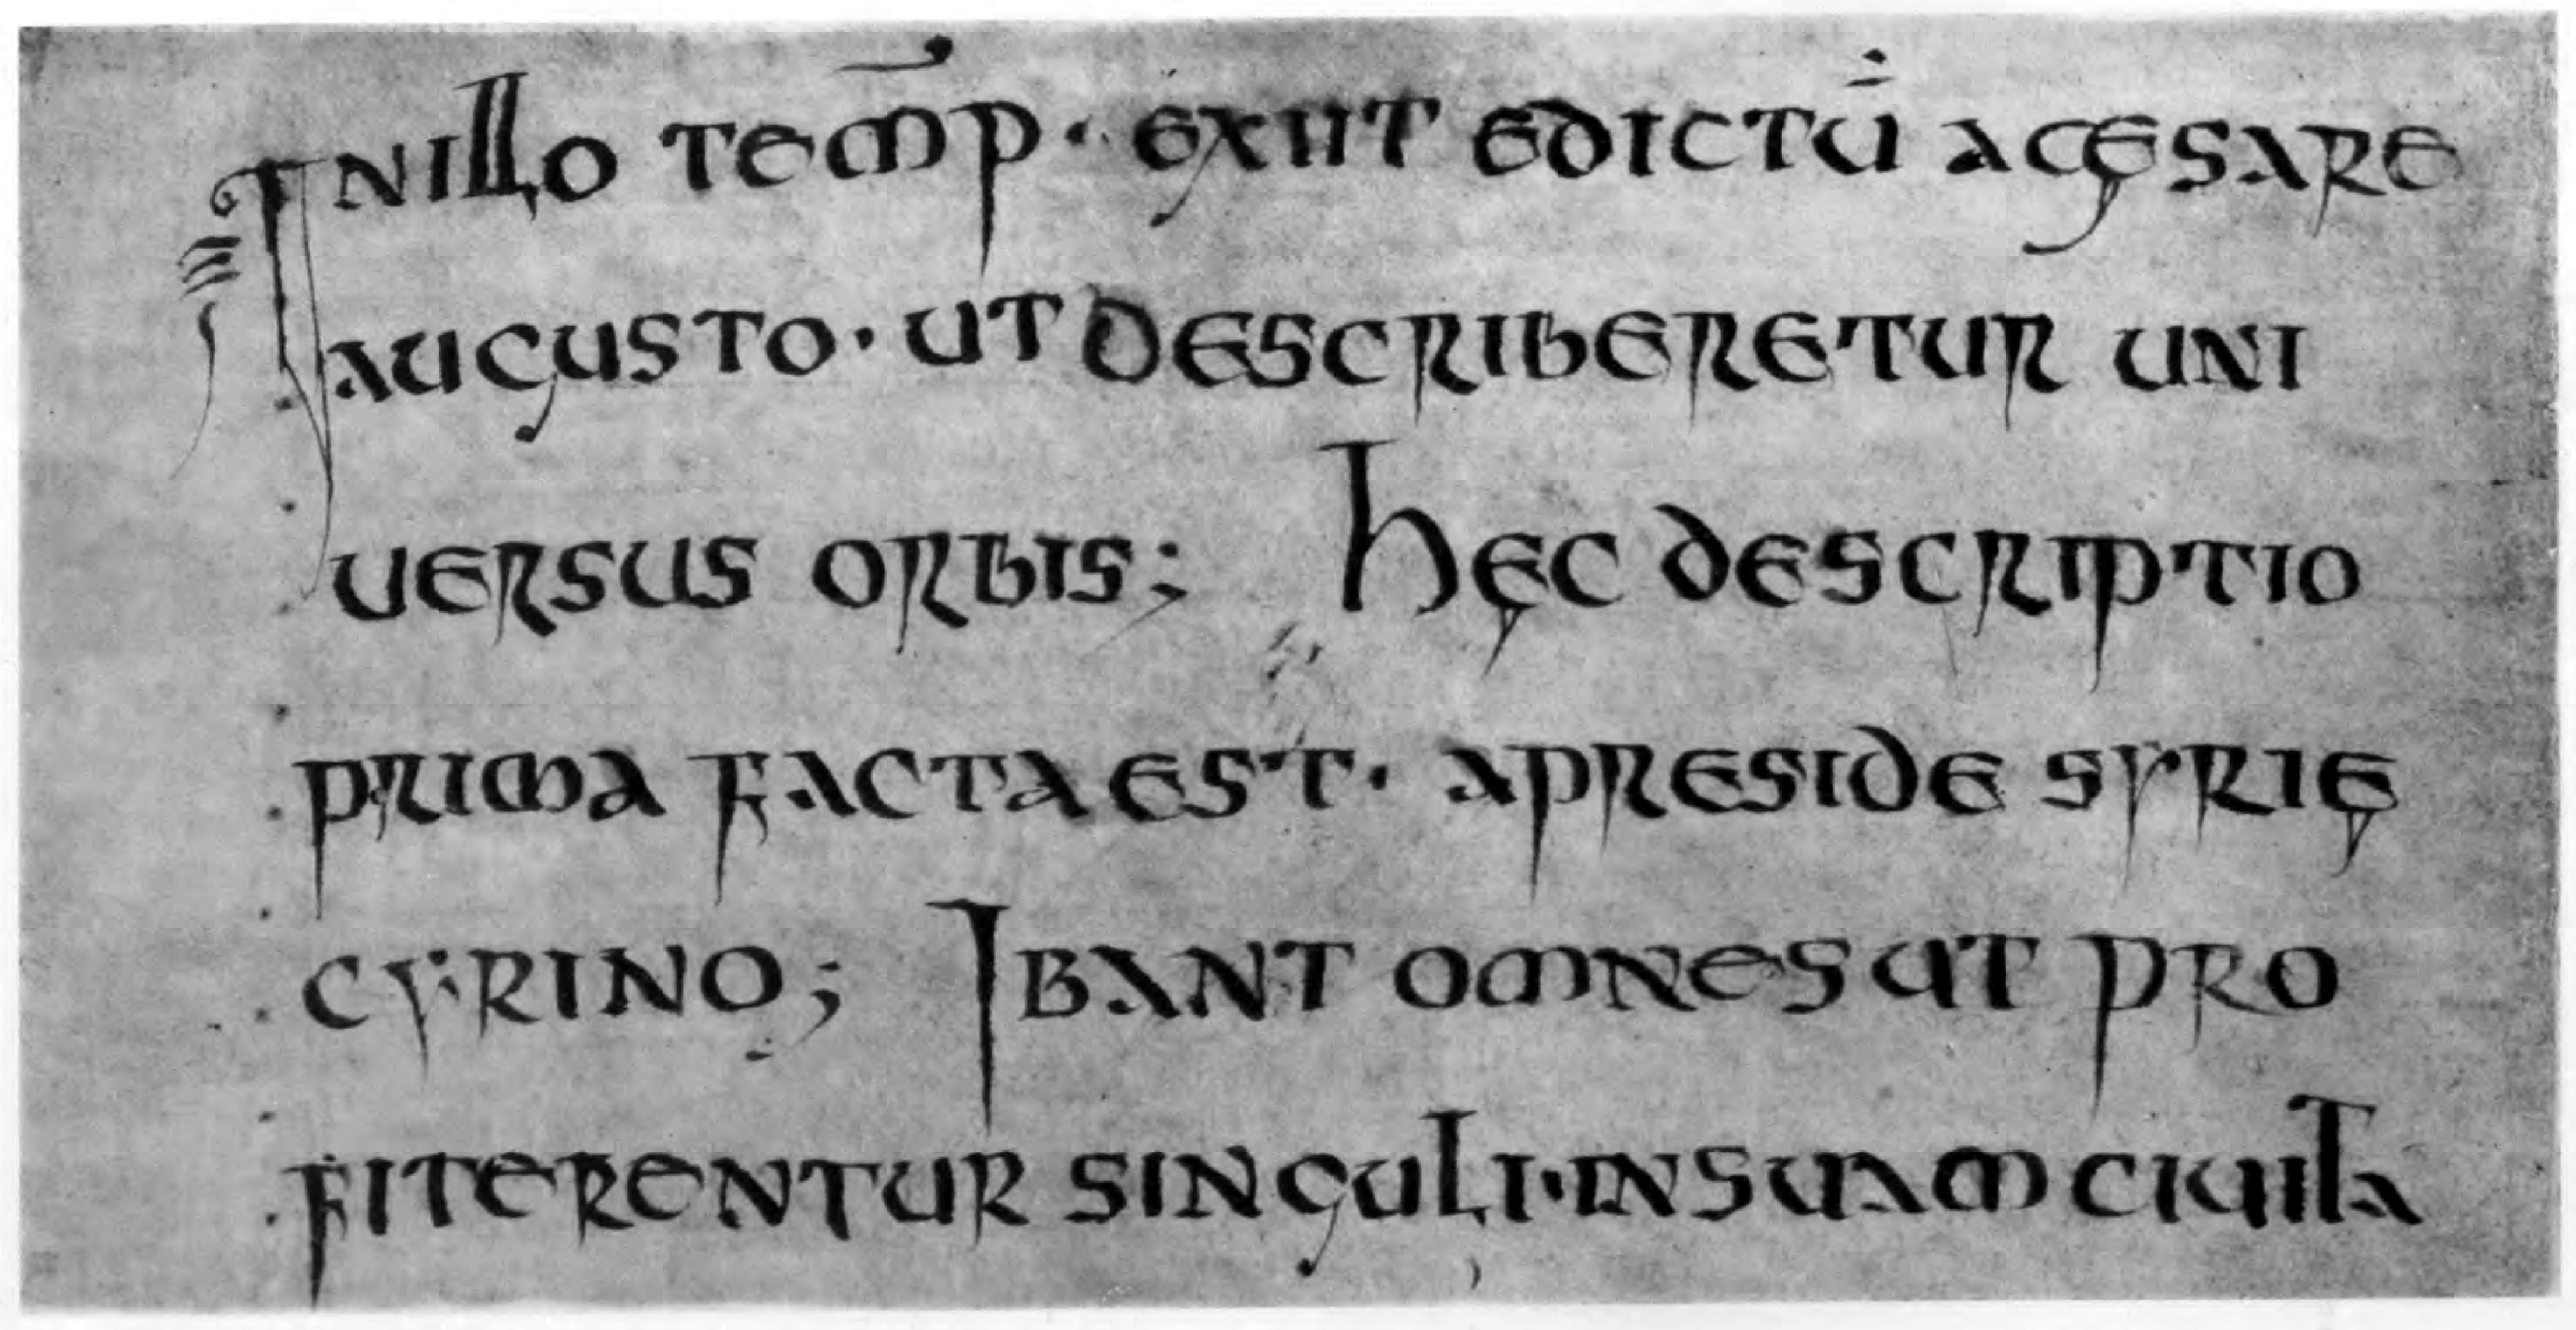 Inillo temp̄· exiit edictū acęsare
augusto· ut describeretur uni
uersus orbis; hęc descriptio
prima facta est· apreside syrię
cyrino; Ibant omnes ut pro
fiterentur singuli· in suam ciuita